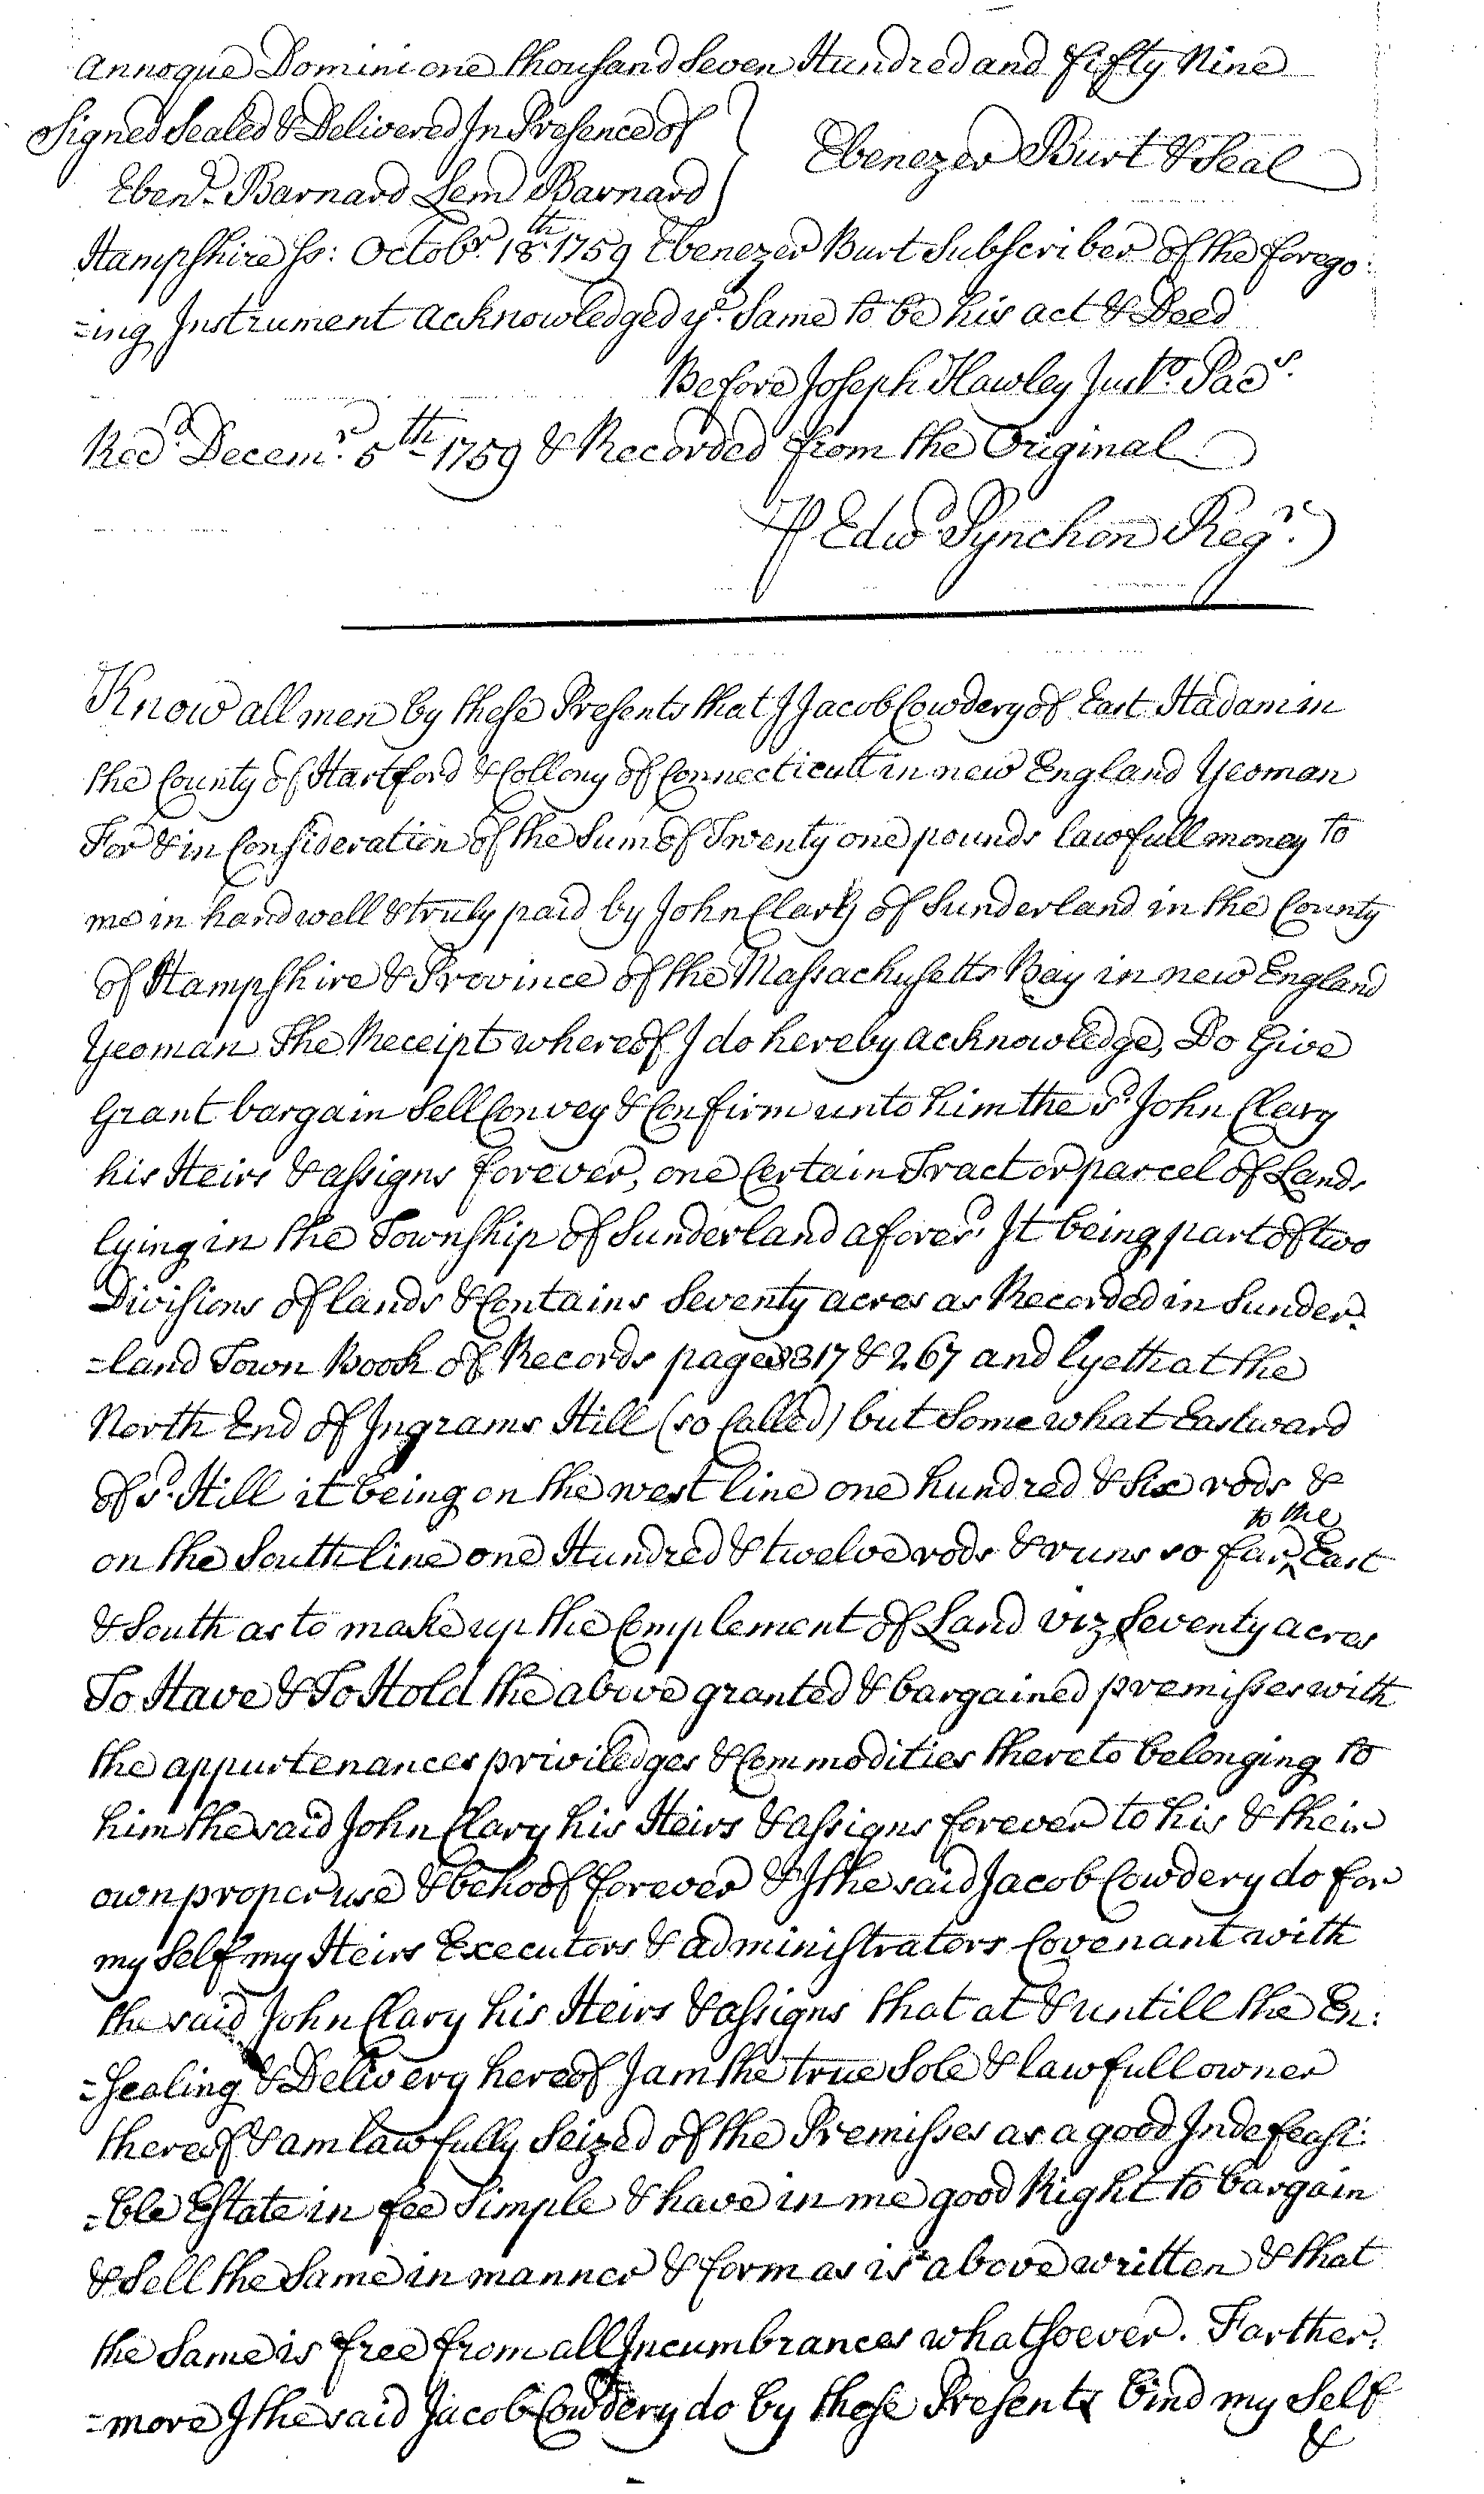 Annoque Domini one thousand Seven Hundred and fifty Nine
Signed Sealed & Delivered In Presence of
Ebenezer Burt & Seal
Ebenr. Barnard Lem Barnard
Hampshire ss: Octobr. 18th 1759 Ebenezer Burt Subscriber of the forego:
=ing Instrument acknowledged ye. Same to be his act & Deed
Before Joseph Hawley Justo. Pacs.
Recd. Decemr. 5th 1759 & Recorded from the Original
P Edwd Pynchon Regr.
Know all men by these Presents that I Jacob Cowdery of East Hadam in
the County of Hartford & Collony of Connecticutt in new England Yeoman
For & in Consideration of the Sum of Twenty one pounds lawfull money to
me in hand well & truly paid by John Clary of Sunderland in the County
of Hampshire & Province of the Massachusetts Bay in new England
Yeoman The Receipt whereof I do hereby acknowledge, Do Give
Grant bargain Sell Convey & Confirm unto him the sd. John Clary
his Heirs & assigns forever, one Certain Tract or parcel of Land,
lying in the Township of Sunderland aforesd. It being part of two
Divisions of lands & Contains Seventy acres as Recorded in Sunder-
=land Town Book of Records pages 317 & 267 and lyeth at the
North End of Ingrams Hill (so Called) but Somewhat Eastward
of sd. Hill it being on the west line one hundred & Six rods &
on the South line one Hundred & twelve rods & runs so far to the East
& South as to make up the Complement of Land viz Seventy acres
To Have & To Hold the above granted & bargained premisses with
the appurtenances priviledges & Commodities thereto belonging to
him the said John Clary his Heirs & assigns forever to his & their
own proper use & behoof forever & I the said Jacob Cowdery do for
my Self my Heirs Executors & administrators Covenant with
the said John Clary his Heirs & assigns that at & untill the En:
=sealing & Delivery hereof I am the true Sole & lawfull owner
thereof & am lawfully Seized of the Premisses as a good Indefeasi:
=ble Estate in fee Simple & have in me good Right to bargain
& Sell the Same in manner & form as is above written & that
the Same is free from all Incumbrances whatsoever. Farther:
=more I the said Jacob Cowdery do by these Presents bind my Self
&